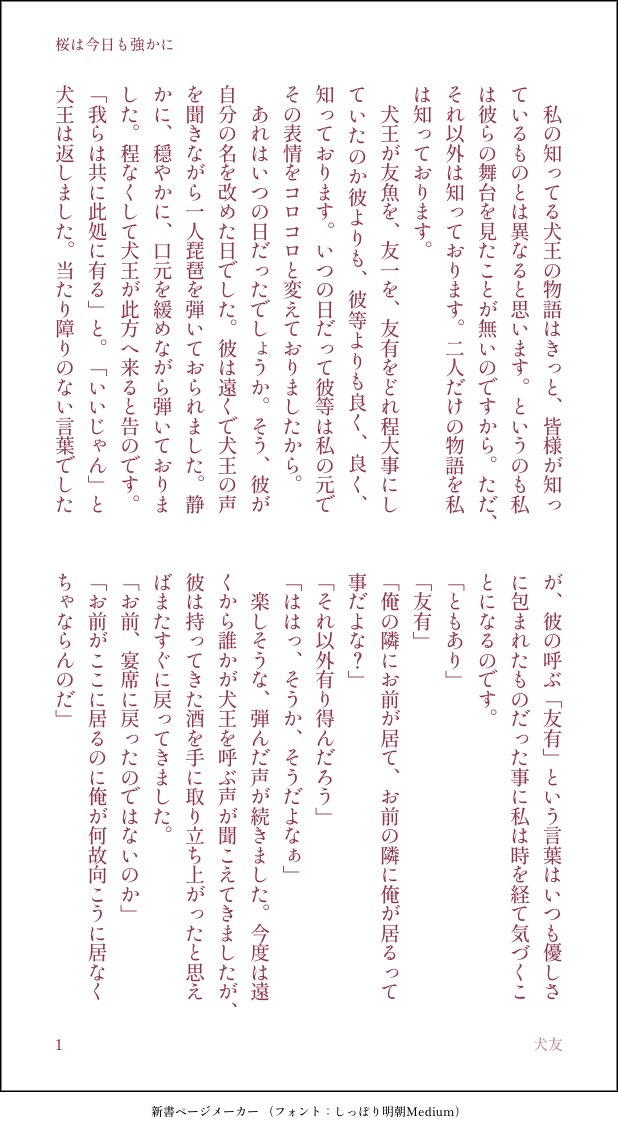 桜は今日も強かに
　私の知ってる犬王の物語はきっと、皆様が知っ
ているものとは異なると思います。というのも私
は彼らの舞台を見たことが無いのですから。ただ、
それ以外は知っております。二人だけの物語を私
は知っております。
　犬王が友魚を、友一を、友有をどれ程大事にし
ていたのか彼よりも、彼等よりも良く、良く、
知っております。いつの日だって彼等は私の元で
その表情をコロコロと変えておりましたから。
　あれはいつの日だったでしょうか。そう、彼が
自分の名を改めた日でした。彼は遠くで犬王の声
を聞きながら一人琵琶を弾いておられました。静
かに、穏やかに、口元を緩めながら弾いておりま
した。程なくして犬王が此方へ来ると告のです。
「我らは共に此処に有る」と。「いいじゃん」と
犬王は返しました。当たり障りのない言葉でした
が、彼の呼ぶ「友有」という言葉はいつも優しさ
に包まれたものだった事に私は時を経て気づくこ
とになるのです。
「ともあり」
「友有」
「俺の隣にお前が居て、お前の隣に俺が居るって
事だよな？」
「それ以外有り得んだろう」
「ははっ、そうか、そうだよなぁ」
　楽しそうな、弾んだ声が続きました。今度は遠
くから誰かが犬王を呼ぶ声が聞こえてきましたが、
彼は持ってきた酒を手に取り立ち上がったと思え
ばまたすぐに戻ってきました。
「お前、宴席に戻ったのではないのか」
「お前がここに居るのに俺が何故向こうに居なく
ちゃならんのだ」
1
犬友
新書ページメーカー （フォント：しっぽり明朝Medium）